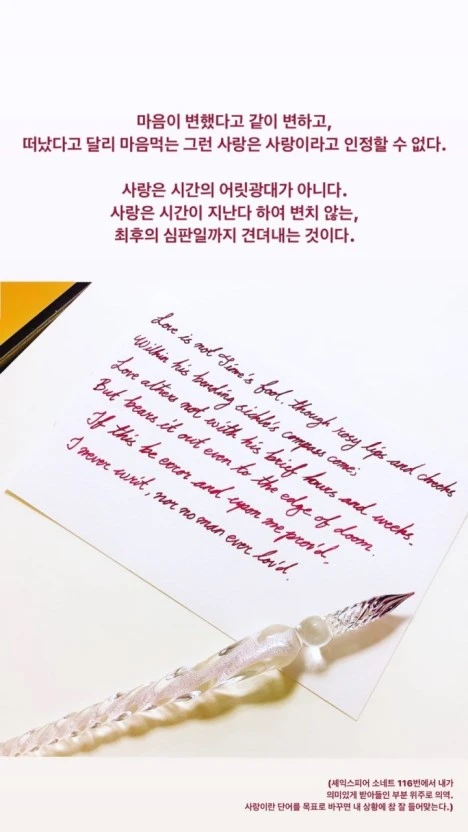 마음이 변했다고 같이 변하고,
떠났다고 달리 마음먹는 그런 사랑은 사랑이라고 인정할 수 없다.
사랑은 시간의 어릿광대가 아니다.
사랑은 시간이 지난다 하여 변치 않는,
최후의 심판일까지 견뎌내는 것이다.
Love is not Time's fool, though rosy lips and cheeks
Within his bending sickle's compass come;
Love alters not with his brief hours and weeks,
But bears it out even to the edge of doom.
If this be error and upon me prov'd,
I never writ, nor no man ever lov'd.
(셰익스피어 소네트 116번에서 내가
의미있게 받아들인 부분 위주로 의역.
사랑이란 단어를 목표로 바꾸면 내 상황에 참 잘 들어맞는다.)